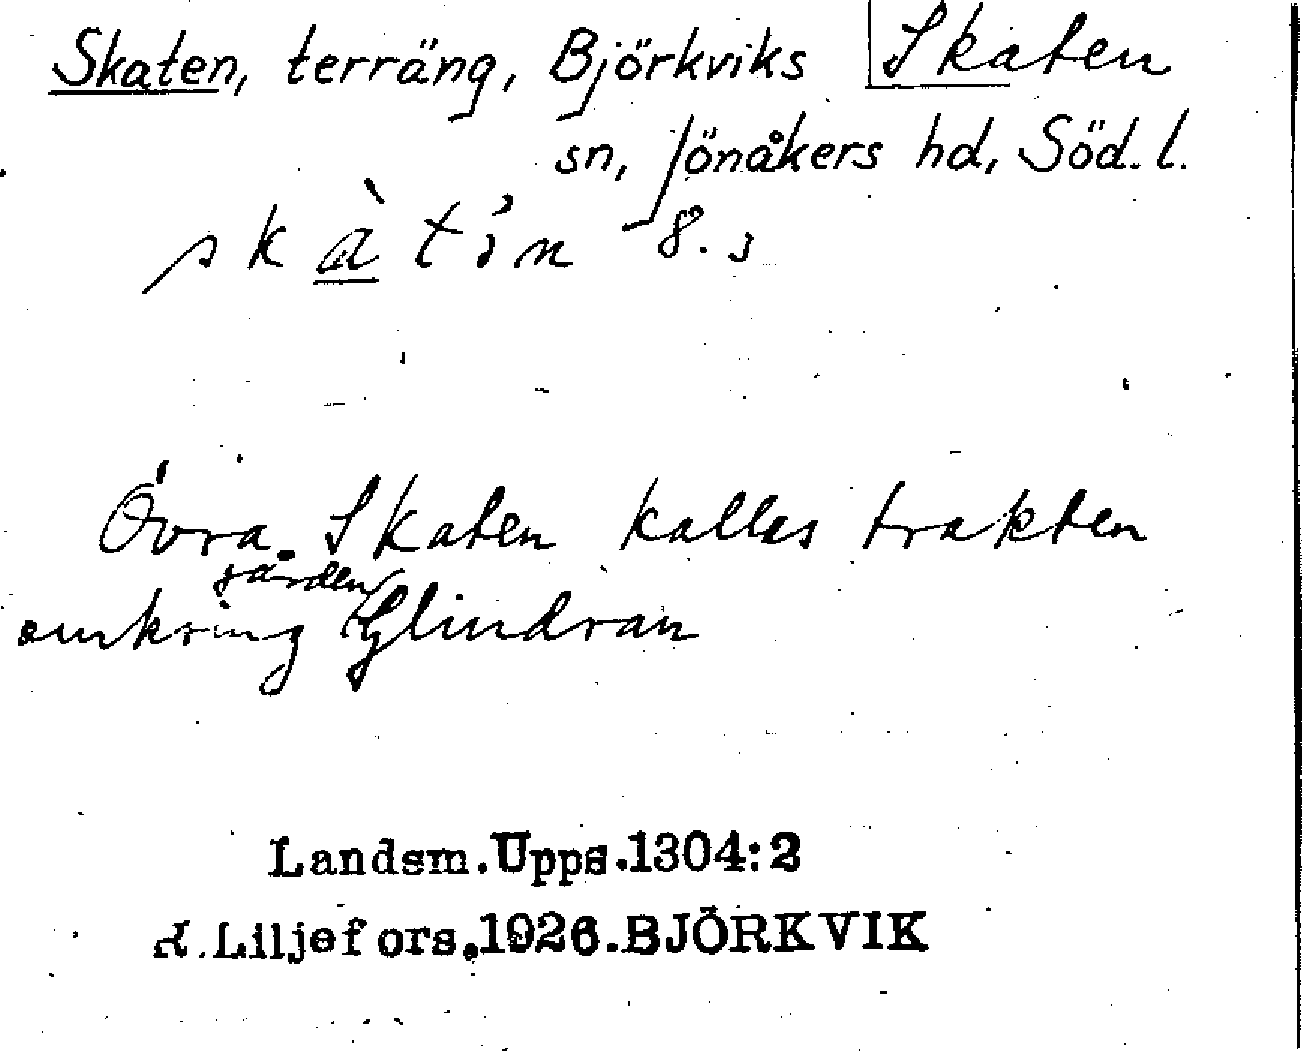 Skaten, terräng, Björkviks Skaten
sn, Jönåkers hd, Söd. l.
skàtin 8. s
Övra Skaten kallas trakten
gården
omkring Glindran
Landsm.Upps.1304:2
Liljefors.1926.BJÖRKVIK